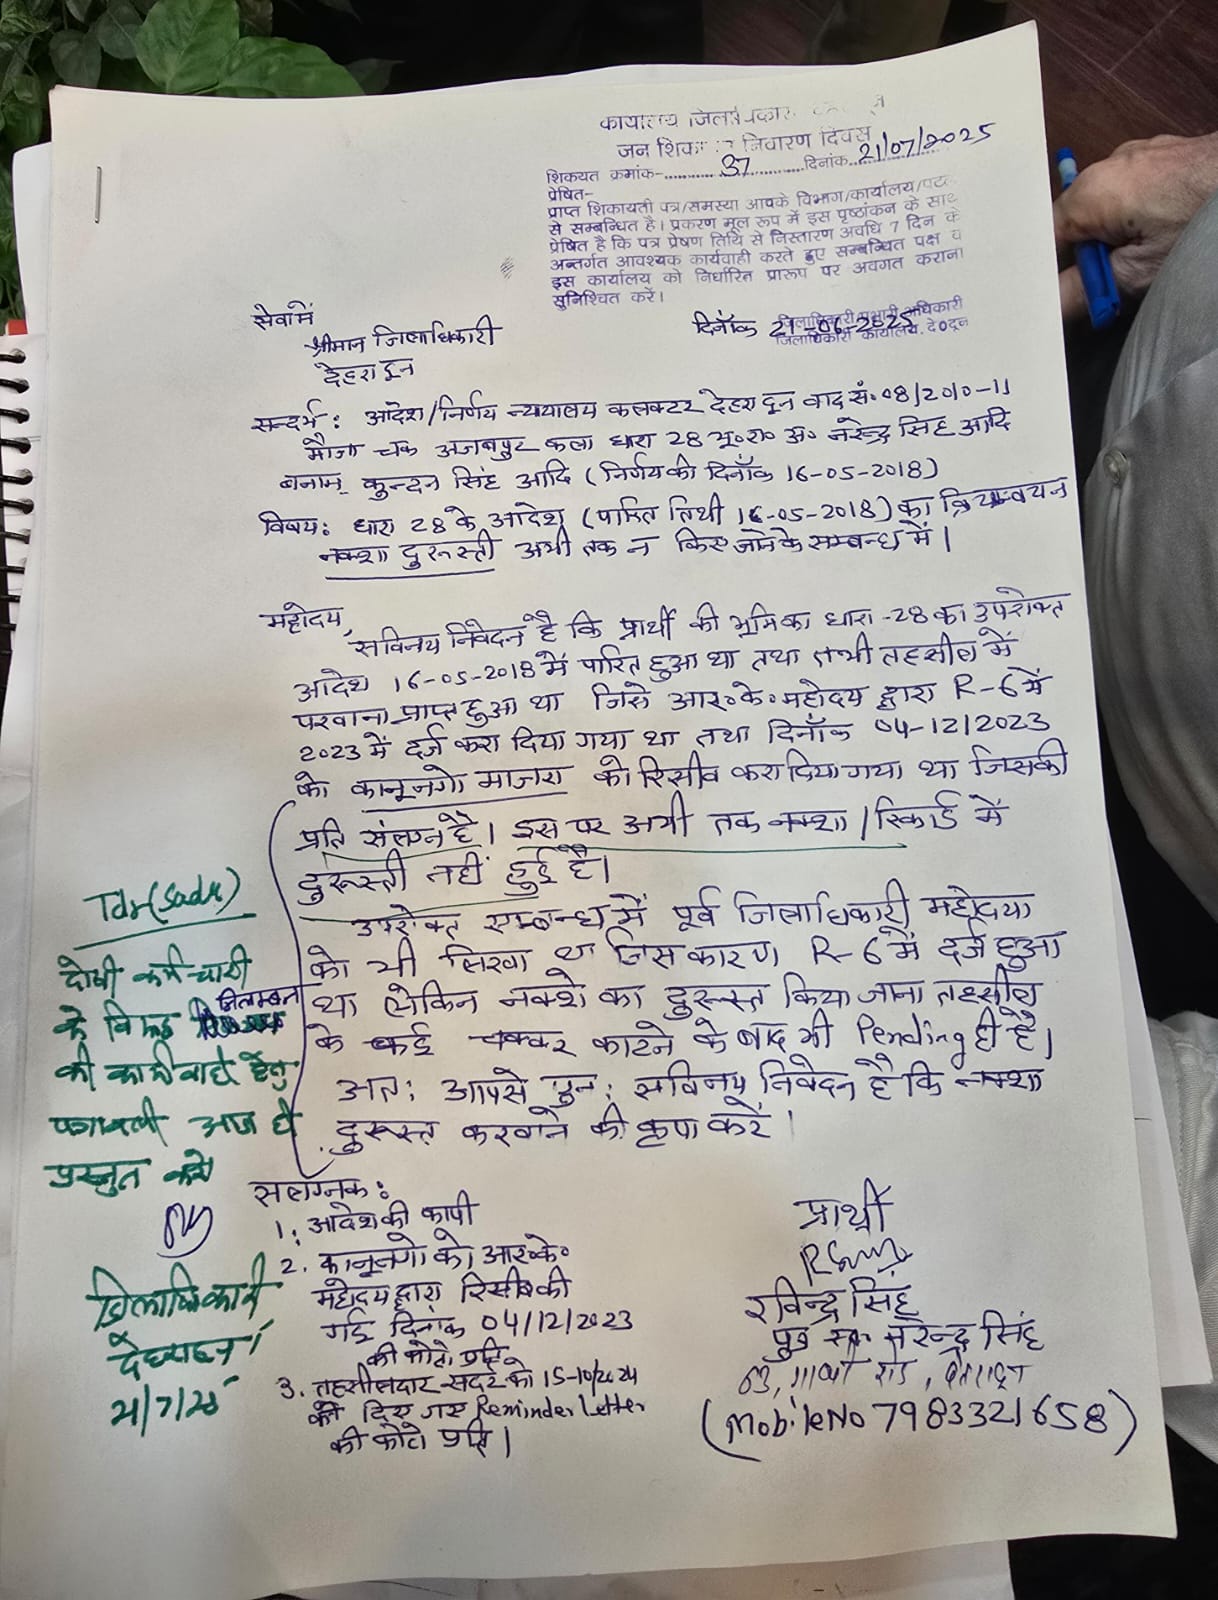 कार्यालय जिलाधिकारी
जन शिकायत निवारण दिवस
शिकयत क्रमांक-............37............दिनांक...21/07/2025
प्रेषित-
प्राप्त शिकायती पत्र/समस्या आपके विभाग/कार्यालय/पटल
से सम्बन्धित है। प्रकरण मूल रूप में इस पृष्ठांकन के साथ
प्रेषित है कि पत्र प्रेषण तिथि से निस्तारण अवधि 7 दिन के
अन्तर्गत आवश्यक कार्यवाही करते हुए सम्बन्धित पक्ष व
इस कार्यालय को निर्धारित प्रारूप पर अवगत कराना
सुनिश्चित करें।
जिलाधिकारी/प्रभारी अधिकारी
जिलाधिकारी कार्यालय, दे0दून
सेवामें
दिनाँक 21-06-2025
श्रीमान जिलाधिकारी
देहरादून
सन्दर्भ: आदेश/निर्णय न्यायालय कलक्टर देहरादून वाद सं० 08/2010-11
मौजा चक अजबपुर कला धारा 28 भू०रा० अ० नरेन्द्र सिंह आदि
बनाम् कुन्दन सिंह आदि (निर्णय की दिनाँक 16-05-2018)
विषय: धारा 28 के आदेश (पारित तिथी 16-05-2018) का क्रियान्वयन
नक्शा दुरूस्ती अभी तक न किए जाने के सम्बन्ध में।
महोदय,
सविनय निवेदन है कि प्रार्थी की भूमि का धारा-28 का उपरोक्त
आदेश 16-05-2018 में पारित हुआ था तथा तभी तहसील में
परवाना प्राप्त हुआ था जिसे आर०के० महोदय द्वारा R-6 में
2023 में दर्ज करा दिया गया था तथा दिनाँक 04-12/2023
को कानूनगो माजरा को रिसीव करा दिया गया था जिसकी
प्रति संलग्न है। इस पर अभी तक नक्शा/रिकार्ड में
दुरूस्ती नहीं हुई है।
उपरोक्त सम्बन्ध में पूर्व जिलाधिकारी महोदया
को भी लिखा था जिस कारण R-6 में दर्ज हुआ
था लेकिन नक्शे का दुरूस्त किया जाना तहसील
के कई चक्कर काटने के बाद भी Pending ही है।
अत: आपसे पुन: सविनय निवेदन है कि नक्शा
दुरूस्त करवाने की कृपा करें।
Tdr (Sadr)
दोषी कर्मचारी
के विरूद्ध निलम्बन
की कार्यवाही हेतु
पत्रावली आज ही
प्रस्तुत करें
जिलाधिकारी
देहरादून।
21/7/25
सलग्नक:
1. आदेश की कापी
2. कानूनगो को आर०के०
महोदय द्वारा रिसीव की
गई दिनांक 04/12/2023
की फोटो प्रति
3. तहसीलदार सदर को 15-10/2024
को दिए गए Reminder Letter
की फोटो प्रति।
प्रार्थी
रविन्द्र सिंह
पुत्र स्व० नरेन्द्र सिंह
63, गांधी रोड, देहरादून
(Mobile No 7983321658)